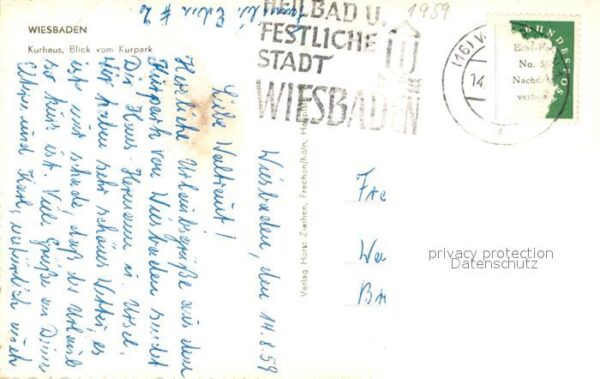 WIESBADEN
Kurhaus, Blick vom Kurpark
1959
HEILBAD U.
FESTLICHE
STADT
WIESBADEN
(16)
14.
BUNDESPOST
No.
Nachdr
verbo
Wiesbaden, den 14.8.59
Liebe Waltraut!
Herrliche Urlaubsgrüße aus dem
Kurpark von Wiesbaden sendet
Dir Klaus-Hermann u. Ursel.
Wir haben sehr schönes Wetter, es
ist nur schade, daß der Urlaub
so kurz ist. Viele Grüße an Deine
Eltern und Karl, natürlich auch
Verlag Horst Ziethen, Frechen/Köln,
Fre
Wa
Br
privacy protection
Datenschutz